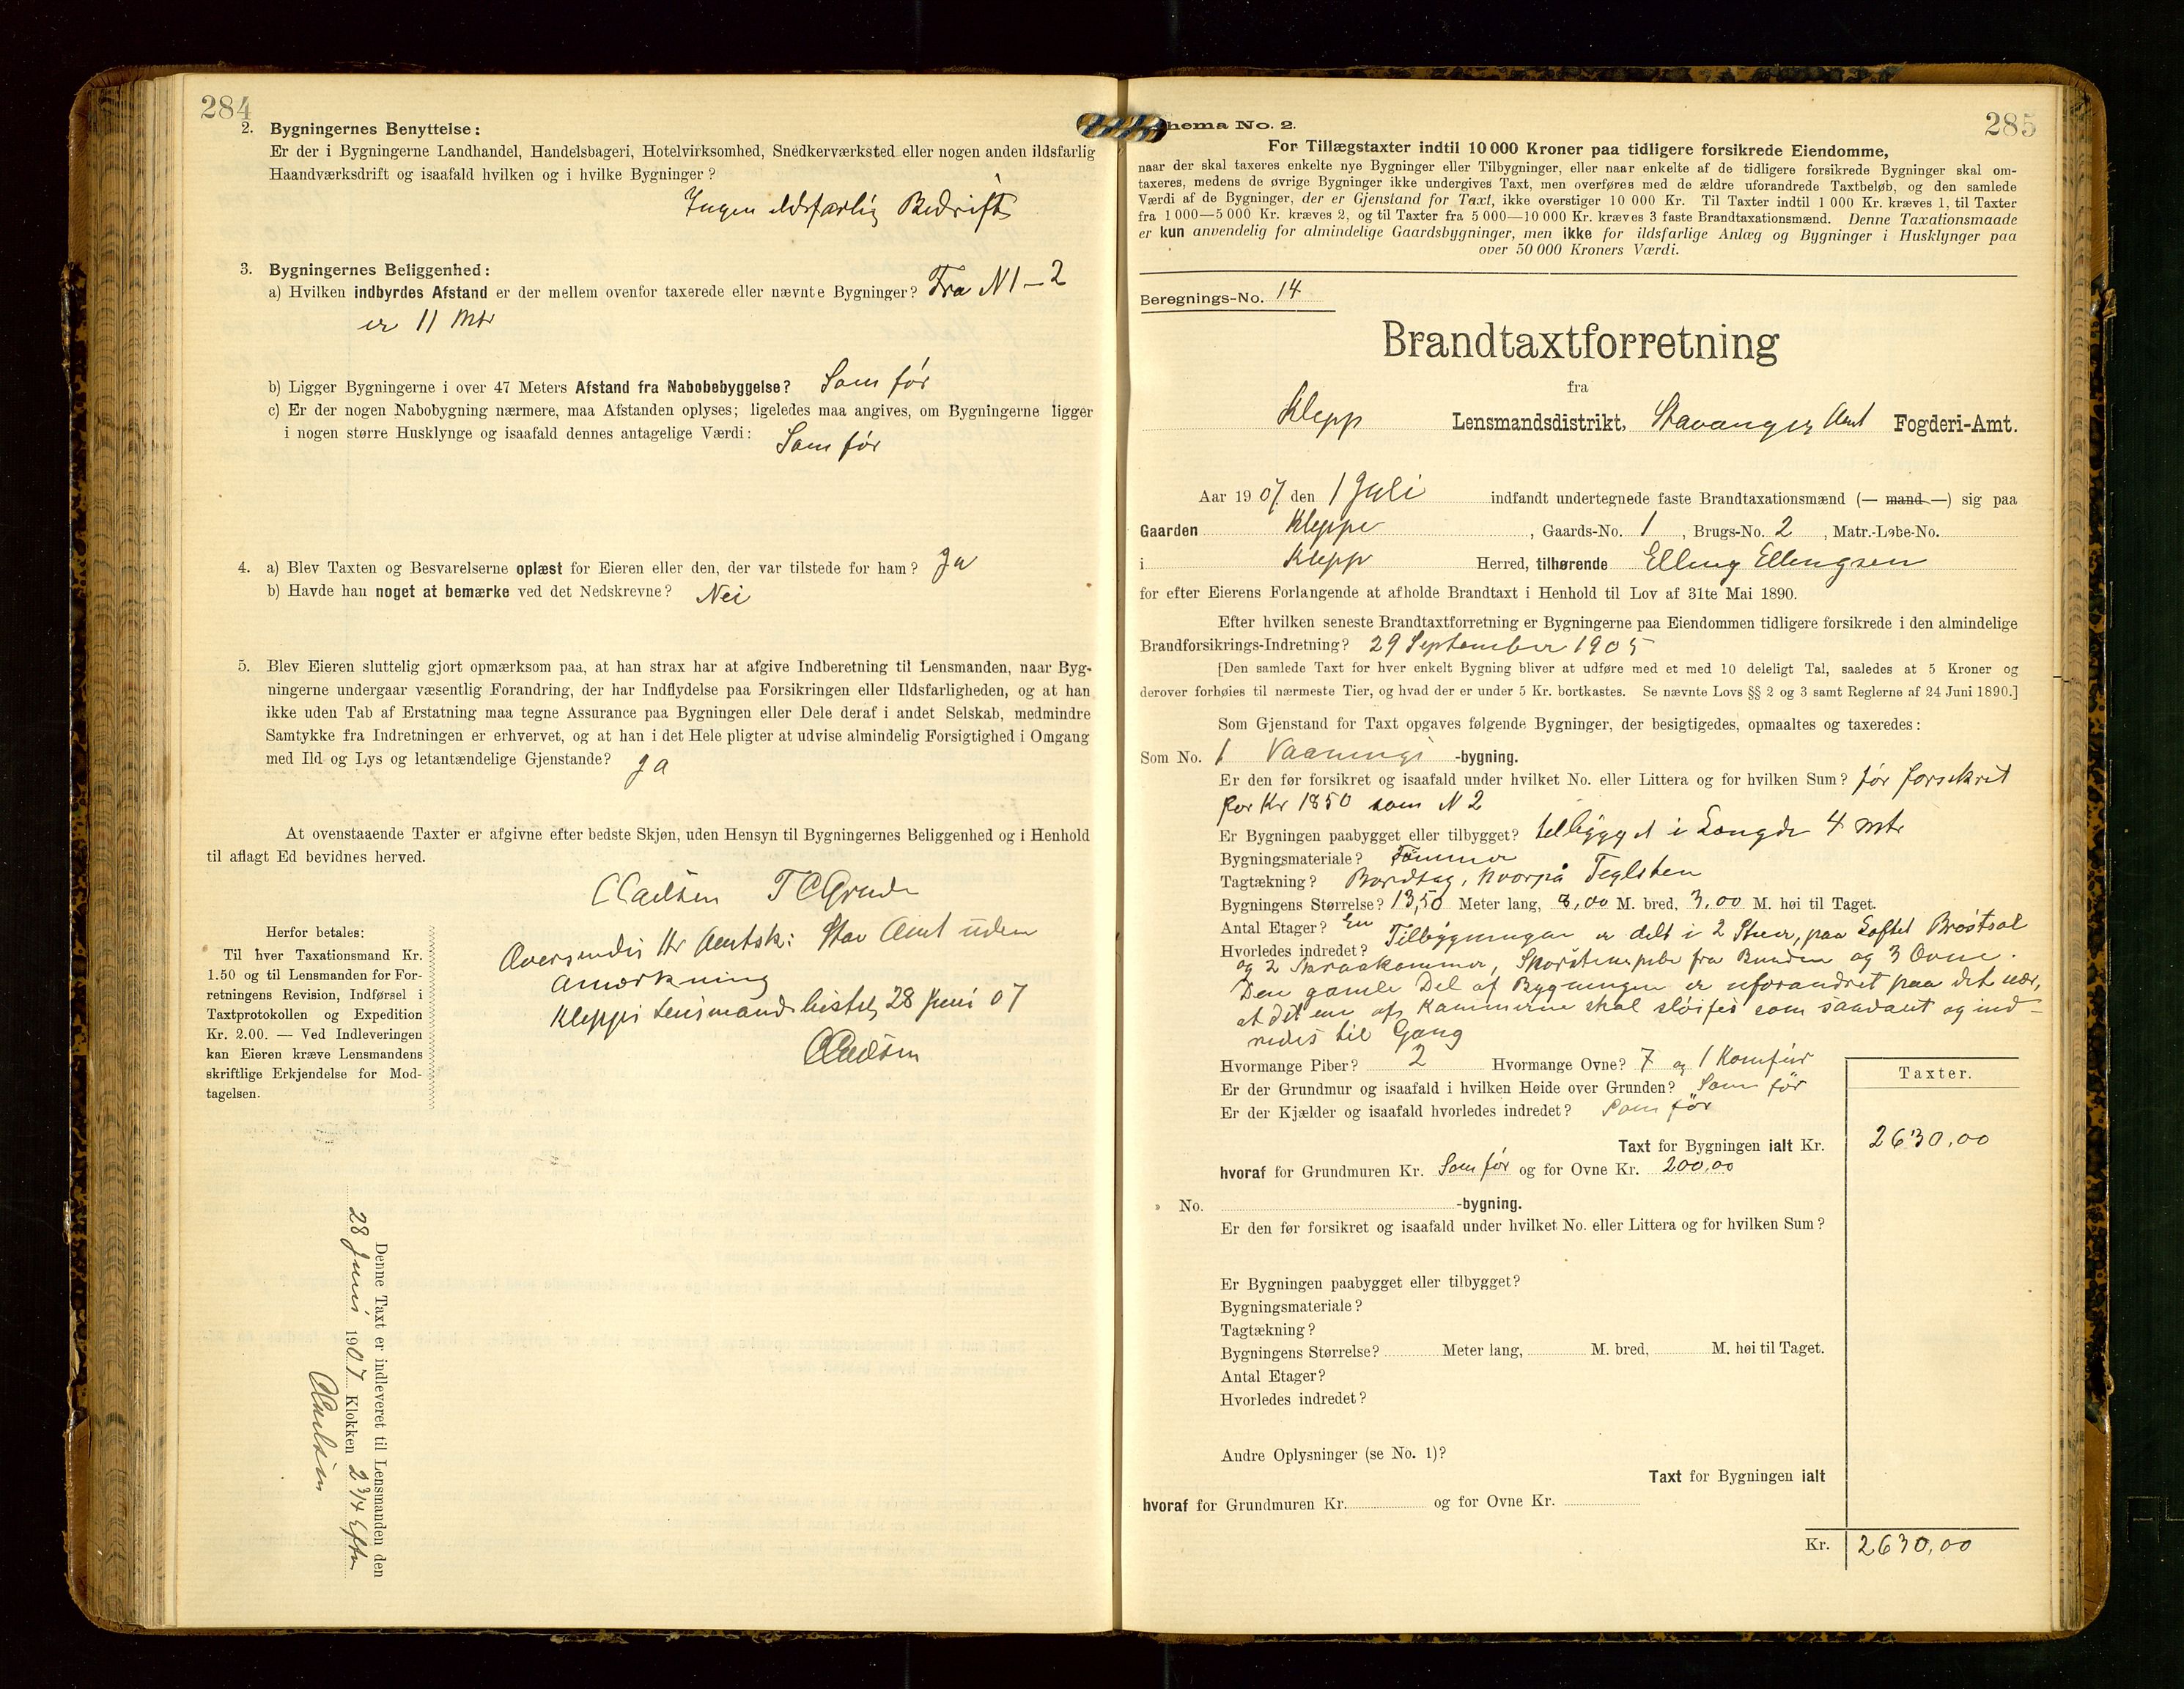 284
2. Bygningernes Benyttelse:
Er der i Bygningerne Landhandel, Handelsbageri, Hotelvirksomhed, Snedkerværksted eller nogen anden ildsfarlig
Haandværksdrift og isaafald hvilken og i hvilke Bygninger?
Ingen ildsfarlig Bedrift
3. Bygningernes Beliggenhed:
a) Hvilken indbyrdes Afstand er der mellem ovenfor taxerede eller nævnte Bygninger? Fra N 1 – 2
er 11 Mtr
b) Ligger Bygningerne i over 47 Meters Afstand fra Nabobebyggelse? Som før
c) Er der nogen Nabobygning nærmere, maa Afstanden oplyses; ligeledes maa angives, om Bygningerne ligger
i nogen større Husklynge og isaafald dennes antagelige Værdi: Som før
4. a) Blev Taxten og Besvarelserne oplæst for Eieren eller den, der var tilstede for ham? Ja
b) Havde han noget at bemærke ved det Nedskrevne? Nei
5. Blev Eieren sluttelig gjort opmærksom paa, at han strax har at afgive Indberetning til Lensmanden, naar Byg-
ningerne undergaar væsentlig Forandring, der har Indflydelse paa Forsikringen eller Ildsfarligheden, og at han
ikke uden Tab af Erstatning maa tegne Assurance paa Bygningen eller Dele deraf i andet Selskab, medmindre
Samtykke fra Indretningen er erhvervet, og at han i det Hele pligter at udvise almindelig Forsigtighed i Omgang
med Ild og Lys og letantændelige Gjenstande? Ja
At ovenstaaende Taxter er afgivne efter bedste Skjøn, uden Hensyn til Bygningernes Beliggenhed og i Henhold
til aflagt Ed bevidnes herved.
T C Grude
Oversendes Hr Amtsk: Stav Amt uden
Anmærkning
Klepps Lensmandsbestil, 28 Juni 07
Herfor betales:
Til hver Taxationsmand Kr.
1.50 og til Lensmanden for For-
retningens Revision, Indførsel i
Taxtprotokollen og Expedition
Kr. 2.00. — Ved Indleveringen
kan Eieren kræve Lensmandens
skriftlige Erkjendelse for Mod-
tagelsen.
Denne Taxt er indleveret til Lensmanden den
28 Juni 1907 Klokken 2 3/4 Eftm
285
hema No. 2.
For Tillægstaxter indtil 10 000 Kroner paa tidligere forsikrede Eiendomme,
naar der skal taxeres enkelte nye Bygninger eller Tilbygninger, eller naar enkelte af de tidligere forsikrede Bygninger skal om-
taxeres, medens de øvrige Bygninger ikke undergives Taxt, men overføres med de ældre uforandrede Taxtbeløb, og den samlede
Værdi af de Bygninger, der er Gjenstand for Taxt, ikke overstiger 10 000 Kr. Til Taxter indtil 1 000 Kr. kræves 1, til Taxter
fra 1 000—5 000 Kr. kræves 2, og til Taxter fra 5 000—10 000 Kr. kræves 3 faste Brandtaxationsmænd. Denne Taxationsmaade
er kun anvendelig for almindelige Gaardsbygninger, men ikke for ildsfarlige Anlæg og Bygninger i Husklynger paa
over 50 000 Kroners Værdi.
Beregnings-No. 14
Brandtaxtforretning
fra
Klepp Lensmandsdistrikt, Stavanger Amt Fogderi-Amt.
Aar 1907 den 1 Juli indfandt undertegnede faste Brandtaxationsmænd (— mand —) sig paa
Gaarden Kleppe, Gaards-No. 1, Brugs-No. 2, Matr.-Løbe-No.
i Klepp Herred, tilhørende Elling Ellingsen
for efter Eierens Forlangende at afholde Brandtaxt i Henhold til Lov af 31te Mai 1890.
Efter hvilken seneste Brandtaxtforretning er Bygningerne paa Eiendommen tidligere forsikrede i den almindelige
Brandforsikrings-Indretning? 29 September 1905
[Den samlede Taxt for hver enkelt Bygning bliver at udføre med et med 10 deleligt Tal, saaledes at 5 Kroner og
derover forhøies til nærmeste Tier, og hvad der er under 5 Kr. bortkastes. Se nævnte Lovs §§ 2 og 3 samt Reglerne af 24 Juni 1890.]
Som Gjenstand for Taxt opgaves følgende Bygninger, der besigtigedes, opmaaltes og taxeredes:
Som No. 1 Vaanings -bygning.
Er den før forsikret og isaafald under hvilket No. eller Littera og for hvilken Sum? før forsikret
for Kr 1850 som N 2
Er Bygningen paabygget eller tilbygget? tilbygget i Længde 4 Mtr
Bygningsmateriale? Tømmer
Tagtækning? Bordtag, hvorpå Teglsten
Bygningens Størrelse? 13,50 Meter lang, 8,00 M. bred, 3,00 M. høi til Taget.
Antal Etager? En
Hvorledes indredet? Tilbygningen er delt i 2 Stuer, paa Loftet Brøstsal
og 2 Skraakammer, Skorstenspibe fra Bunden og 3 Ovne.
Den gamle Del af Bygningen er uforandret paa det nær,
at det ene af Kammerne skal sløifes som saadant og ind-
redes til Gang
Hvormange Piber? 2 Hvormange Ovne? 7 og 1 Komfür
Er der Grundmur og isaafald i hvilken Høide over Grunden? Som før
Er der Kjælder og isaafald hvorledes indredet? Som før
Taxter.
Taxt for Bygningen ialt Kr. 2630,00
hvoraf for Grundmuren Kr. Som før og for Ovne Kr. 200,00
» No. -bygning.
Er den før forsikret og isaafald under hvilket No. eller Littera og for hvilken Sum?
Er Bygningen paabygget eller tilbygget?
Bygningsmateriale?
Tagtækning?
Bygningens Størrelse? Meter lang, M. bred, M. høi til Taget.
Antal Etager?
Hvorledes indredet?
Andre Oplysninger (se No. 1)?
Taxt for Bygningen ialt
hvoraf for Grundmuren Kr. og for Ovne Kr.
Kr. 2630,00